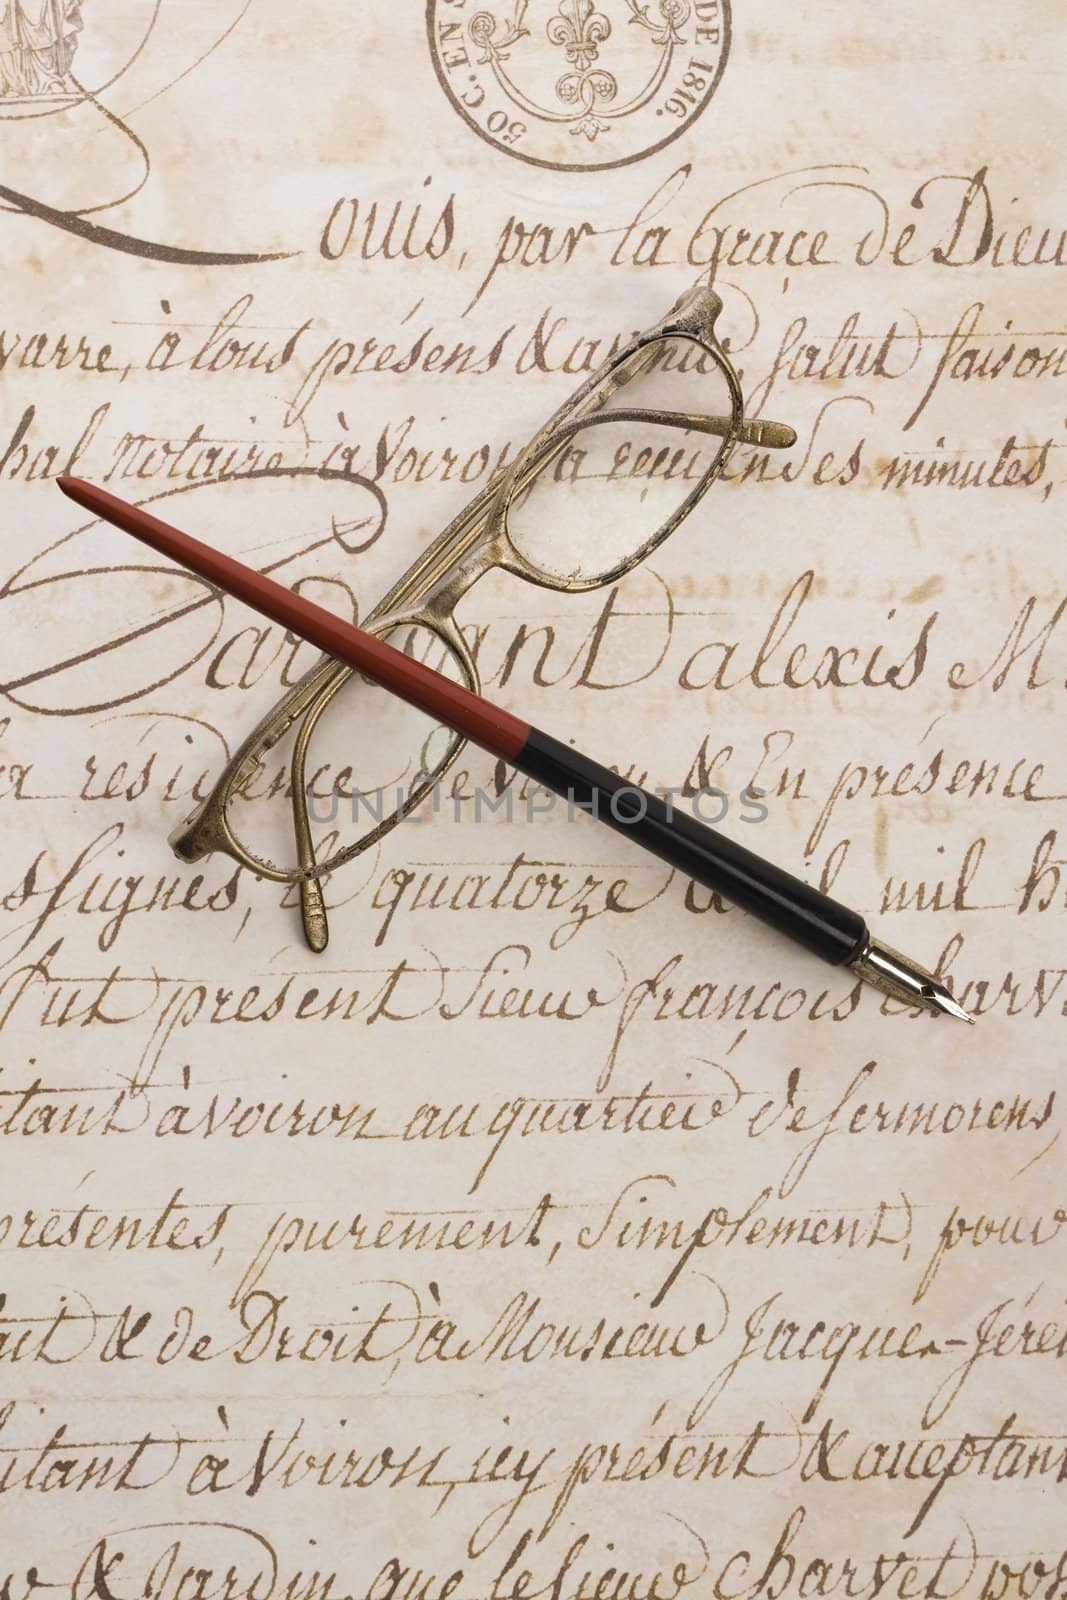 50 C. EN S DE 1816.
Louis, par la Grace de Dieu
varre, à tous présens & a venir, Salut faison
hal notaire à Voiron, a reçu en Ses minutes,
Pardevant alexis M
la résidence de Voiron & En présence
ssignés, le quatorze avril mil h
fut présent Sieur françois Charv
itant à voiron au quartier de Sermorens,
présentes, purement, Simplement, pour
ait & de Droit, à Monsieur Jacques-Jére
itant à Voiron, icy présent & acceptant
& Jardin que le Sieur Charvet pos
UNLIMPHOTOS